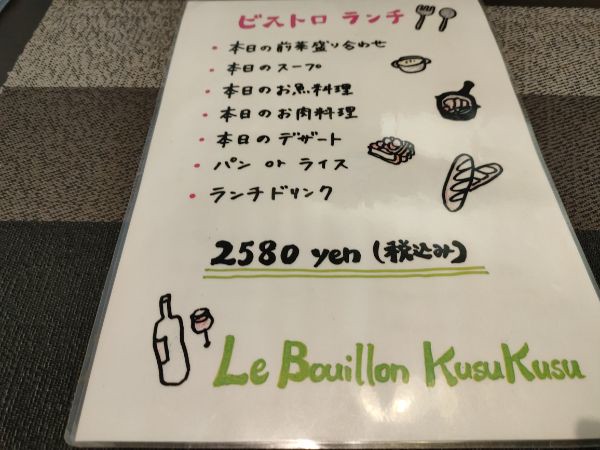 ビストロ ランチ
・本日の前菜盛り合わせ
・本日のスープ
・本日のお魚料理
・本日のお肉料理
・本日のデザート
・パン or ライス
・ランチドリンク
2580 yen (税込み)
Le Bouillon KusuKusu